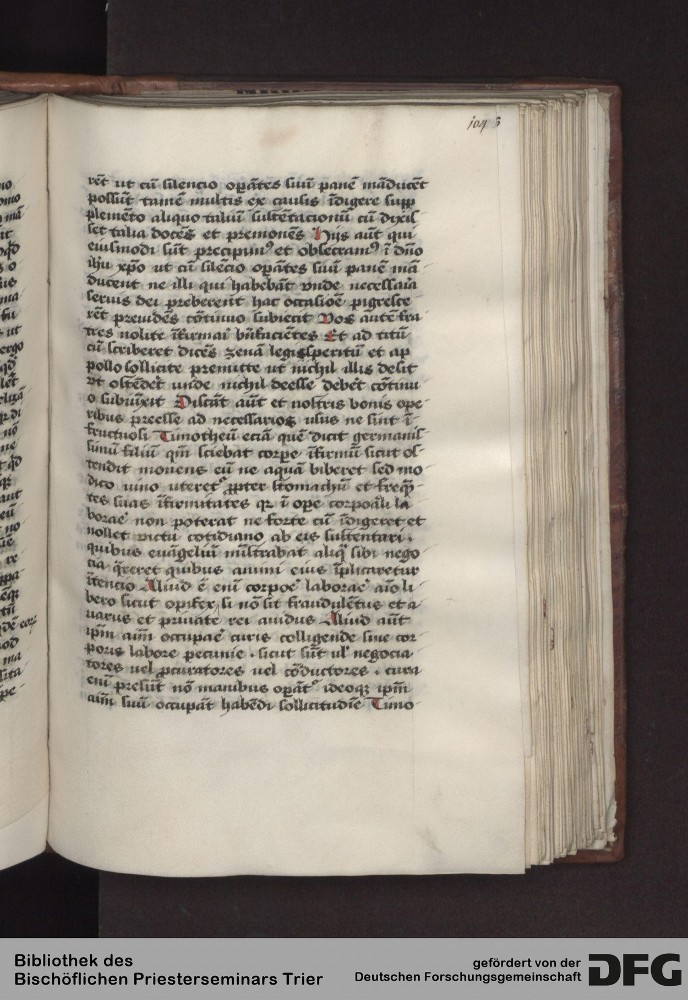 104 3
rēt ut cū silencio opāntes suū panē māducēt
possūt tamē multis ex causis īdigere supp
plemēto aliquo taliū sustētacionū cū dixis
set talia docēs et premonēs Hijs aūt qui
eiusmodi sūt precipimꝰ et obsecramꝰ ī dn̄o
ihū xp̄o ut cū silēcio opāntes suū panē mā
ducent ne illi qui habebāt vnde necessaia
seruis dei preberent hac occasiōe pigresce
rēt preuidēs cōtinuo subiecit Vos autē fra
tres nolite īfirmai bn̄faciētes Et ad titū
cū scriberet dicēs zenā legisperitū et ap
pollo sollicite premitte ut nichil illis desit
vt ostēdēt unde nichil deesse debēt cōtinu
o subiūxit Discāt aūt et nostris bonis ope
ribus preesse ad necessarios usus ne sint ī
fructuosi Timotheū eciā quē dicit germanis
simū filiū qm̄ sciebat corpe īfirmū sicut os
tendit monens eū ne aquā biberet sed mo
dico uino uteretᷣ ꝓpter stomachū et freq̄
tes suas īfirmitates qr ī ope corpoāli la
borae non poterat ne forte cū īdigeret et
nollet victū cotidiano ab eis sustentari .
quibus euāgeliū mīstrabat aliqͣ sibi nego
cia q̄reret quibus animi eius īplicaretur
ītencio Aliud ē eni corpoe laborae aīo li
bero sicut opifex si nō sit fraudulētus et a
uarus et priuate rei auidus Aliud aūt
ip̄m aīm occupae curis colligende sine cor
poris labore pecunie . sicut sūt ul' negocia
tores uel ꝓcuratores uel cōductores . cura
eni presūt nō manibus opātᷣ ideoqꝫ ip̄m
aīm suū occupāt habēdi sollicitudīe Timo
Bibliothek des
Bischöflichen Priesterseminars Trier
gefördert von der
Deutschen Forschungsgemeinschaft
DFG